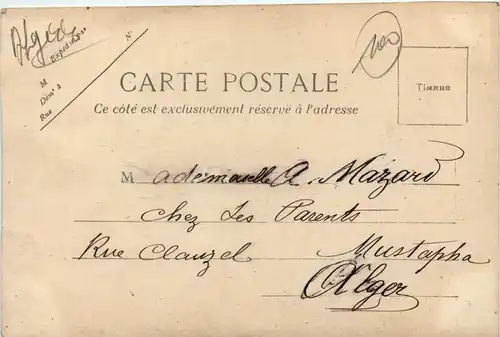 Algérie
Expéditeur
N.
M
Demt à
Rue
100
CARTE POSTALE
Ce côté est exclusivement réservé à l'adresse
TIMBRE
Mademoiselle A. Mazard
chez Ses Parents
Rue Clauzel Mustapha
Alger